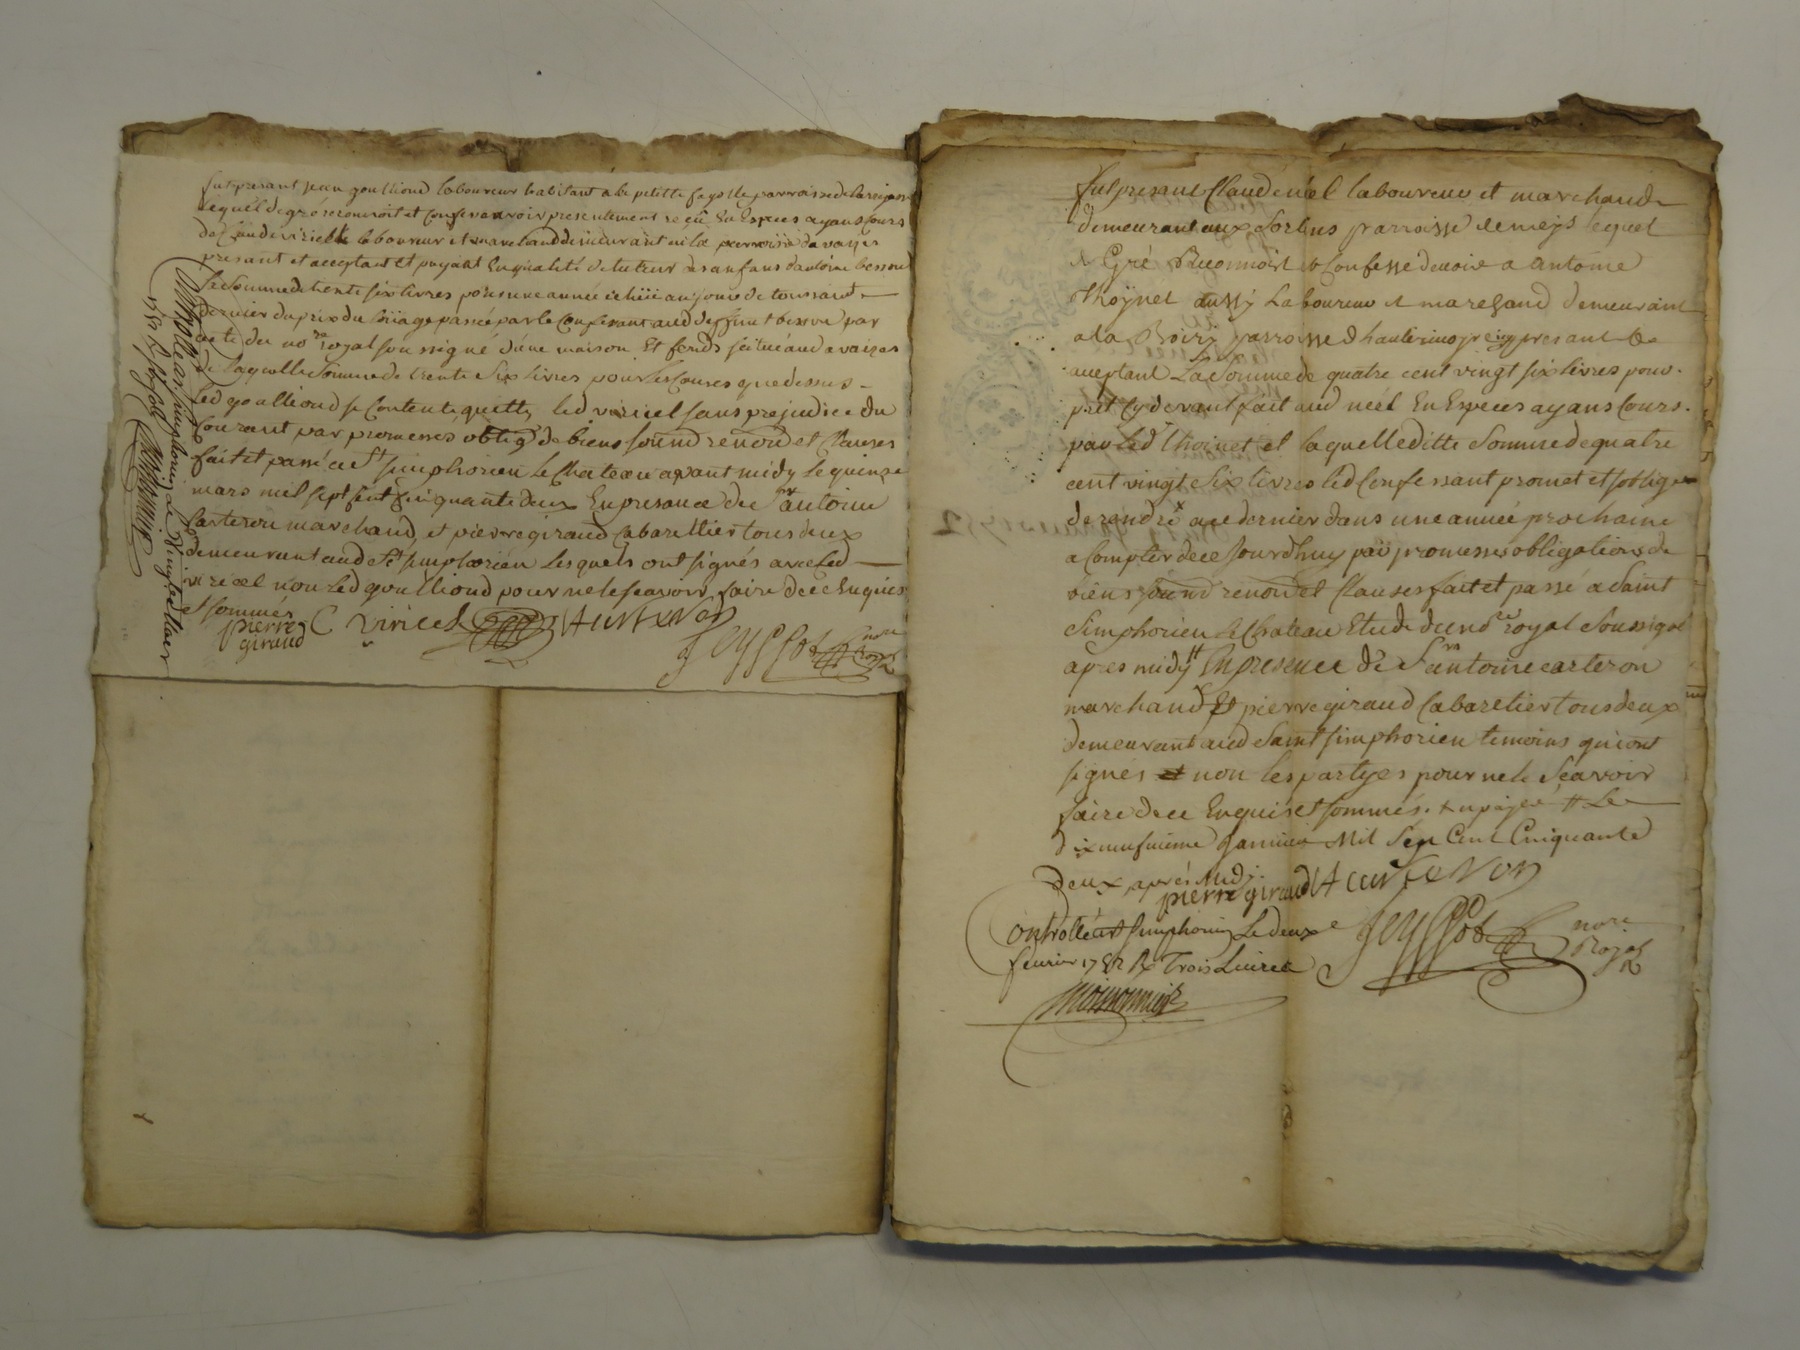 fut presant jean goullioud laboureur habitant a la petitte fayolle parroisse de larajasse
lequel de gré reconnoit et confesse avoir presentement reçü En Especes ayans Cours
de Claude viricelle laboureur et marchand demeurant en la parroisse de
presant et acceptant et payant En qualité de tuteur des anfans d'antoine besson
la somme de trente six livres pour une année echüe au jour de toussaint
dernier du prix du passée par le Confessant aud deffunt besson par
acte du no.re royal soussigné d'une maison Et fonds scitué aud
de laquelle somme de trente six livres pour les Causes que dessus
led goullioud se Contente quitte led viricel sans prejudice du
Courant par promesses oblig.ns de biens soumd renond et Clauses
fait et passé a S.t simphorien le Chateau avant midy le quinze
mars mil sept cent cinquante deux En presance de s.r antoine
Carteron marchand, et pierre giraud Cabarettier tous deux
demeurant aud S.t simphorien lesquels ont signés avec led
viricel non led goullioud pour ne le scavoir faire de ce Enquis
et sommés
pierre giraud C viricel A Carteron
Jeyssot no.re Royal
Controllé a S.t simphorien le
1752 R.
fut presant Claude néel laboureur et marchand
demeurant aux parroisse de meys lequel
de Gré Reconnoist et Confesse devoir a antoine
Thoynet aussy Laboureur et marchand demeurant
a la parroisse d'hauterivoire icy presant &
acceptant La Somme de quatre cent vingt six livres pour
prêt Cy devant fait aud néel En Especes ayans Cours
par led Thoinet et laquelle ditte Somme de quatre
cent vingt Six livres led Confessant promet et s'oblige
de rendre x a ce dernier dans une année prochaine
a Compter de ce Jourdhuy par promesses obligations de
biens soumd renond et Clauses fait et passé a Saint
Simphorien le Chateau Etude du no.re royal Soussigné
apres midy # En presence de S.r antoine carteron
marchand Et pierre giraud Cabaretier tous deux
demeurant aud Saint simphorien temoins qui ont
signés et non les partyes pour ne le Scavoir
faire de ce Enquis et sommés. x # Le
dixneufvieme Janvier Mil Sept Cent Cinquante
Deux après Midy.
pierre giraud A Carteron
Controllé a S.t simphorien Le deux
fevrier 1752 R. Trois Livres
Jeyssot no.re Royal